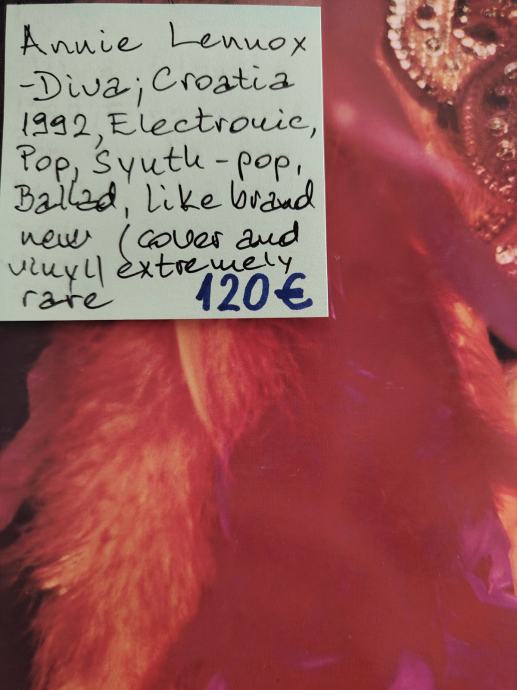 Annie Lennox
-Diva; Croatia
1992, Electronic,
Pop, Synth-pop,
Ballad, like brand
new (cover and
vinyl) extremely
rare 120€